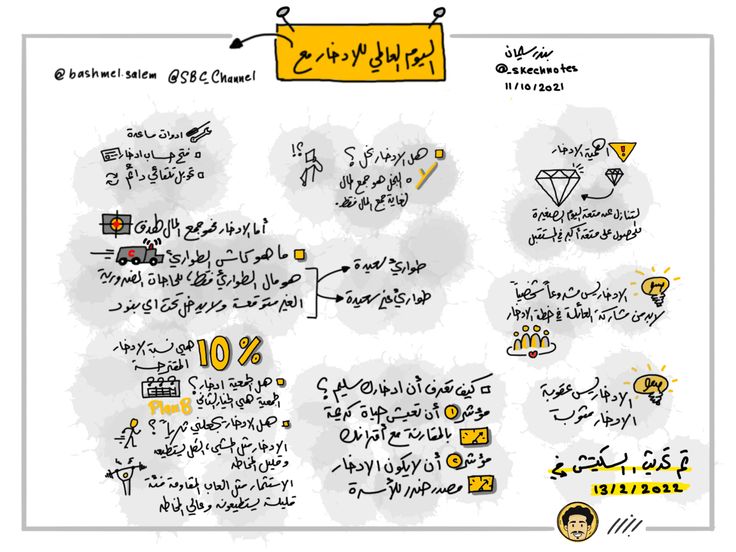 اليوم العالمي للادخار مع
@bashmel.salem @SBC_Channel
بندر سليمان
@_skechnotes
11/10/2021
أهمية الادخار
!
التنازل عن متعة اليوم الصغيرة
للحصول على متعة أكبر في المستقبل
الادخار ليس مشروعاً شخصياً
لابد من مشاركة العائلة في خطة الادخار
الادخار ليس عقوبة
الادخار مثوبة
تم تحديث السكتش في
13/2/2022
هل الادخار بخل؟
البخل هو جمع المال
لغاية جمع المال فقط.
!?
ادوات مساعدة
فتح حساب ادخار
تحويل تلقائي دائم
أما الادخار فهو جمع المال لهدف
ما هو كاش الطوارئ؟
هو مال الطوارئ فقط، للحاجات الضرورية
الغير متوقعة ولا يدخل تحت اي بنود
طوارئ سعيدة
طوارئ غير سعيدة
10%
هي نسبة الادخار
المقترحة
هل الجمعية ادخار؟
الجمعية هي الخيار الثاني
Plan B
هل الادخار يجعلني ثرياً؟
الادخار مثل المشي، الكل يستطيعه
وقليل المخاطر
الاستثمار مثل العاب المقاومة فئة
قليلة يستطيعونه وعالي المخاطر
كيف تعرف أن ادخارك سليم؟
مؤشر 1 أن تعيش حياة كريمة
بالمقارنة مع أقرانك
مؤشر 2 أن لا يكون الادخار
مصدر خطر للأسرة